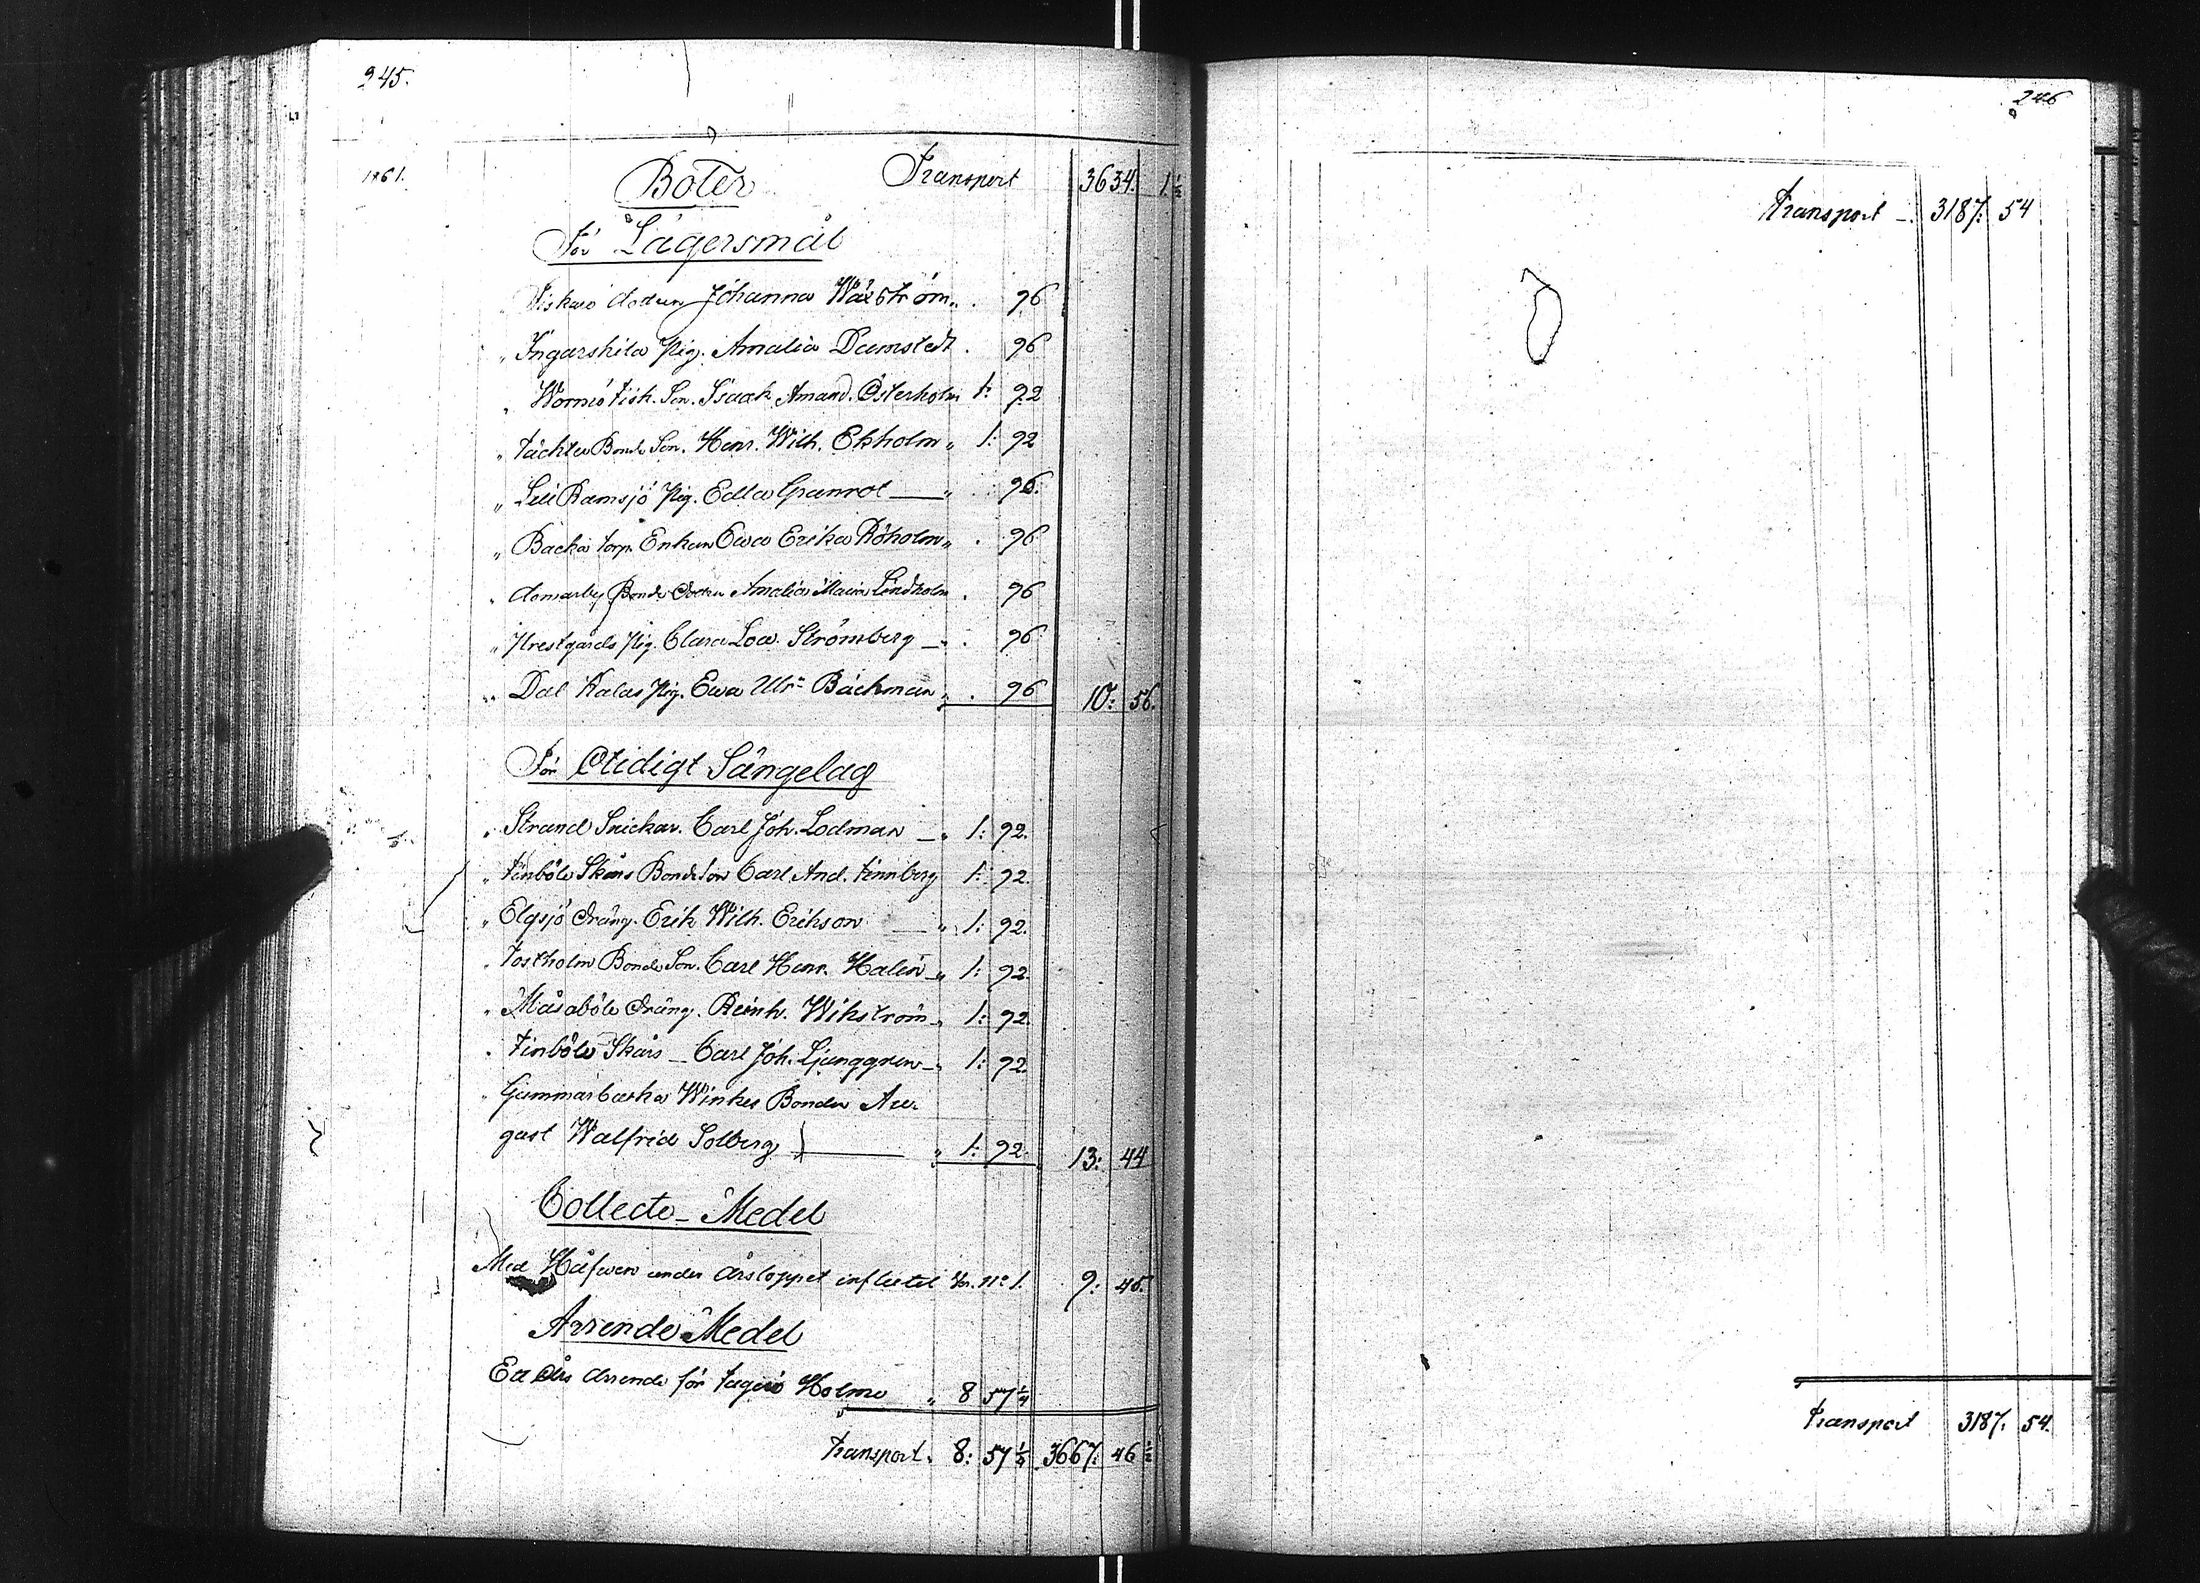 245.
1861.
Böter Transport 3634. 1½
För Lägersmål
Fiskare dottren Johanna Waxström „ . 96
„ Ingarskila Pig. Amalia Damstedt . 96
„ Wormö Fisk. Son. Isaak Amand. Österholm 1: 92
„ Täckter Bonde Son. Henr. Wilh. Ekholm „ 1: 92
„ Lill Ramsjö Pig. Edla Granrot — „ . 96.
„ Backa torp. Enkan Ewa Erika Röholm „ . 96
„ Domarby Bonde Dottern Amalia Maria Lindholm . 96
„ Prestgårds Pig. Clara Lov. Strömberg — „ . 96
„ Dal Kalas Pig. Ewa Ulr. Bäckman „ . 96 10: 56.
För Otidigt Sängelag
„ Strand Snickar. Carl Joh. Lodman — „ 1: 92.
„ Finböle Skårs Bonde Son Carl And. Finnberg 1: 92.
„ Elgsjö Dräng. Erik Wilh. Erikson — „ 1: 92.
„ Tostholm Bonde Son. Carl Henr. Halin — „ 1: 92.
„ Måsaböle Dräng. Reinh. Wikström „ 1: 92.
„ Finböle Skårs — Carl Joh. Ljunggren — „ 1: 92.
„ Gummarbacka Winkes Bonden Au-
gust Walfrid Solberg — „ 1: 92. 13: 44
Collecte-Medel
Med Håfwen under årsloppet influtit Ver. N:o 1. 9: 45.
Arrende Medel
Ett Års Arrende för Holme „ 8 57¼
Transport. 8: 57¼ 3667: 46½
246
Transport — 3187: 54
Transport 3187: 54.